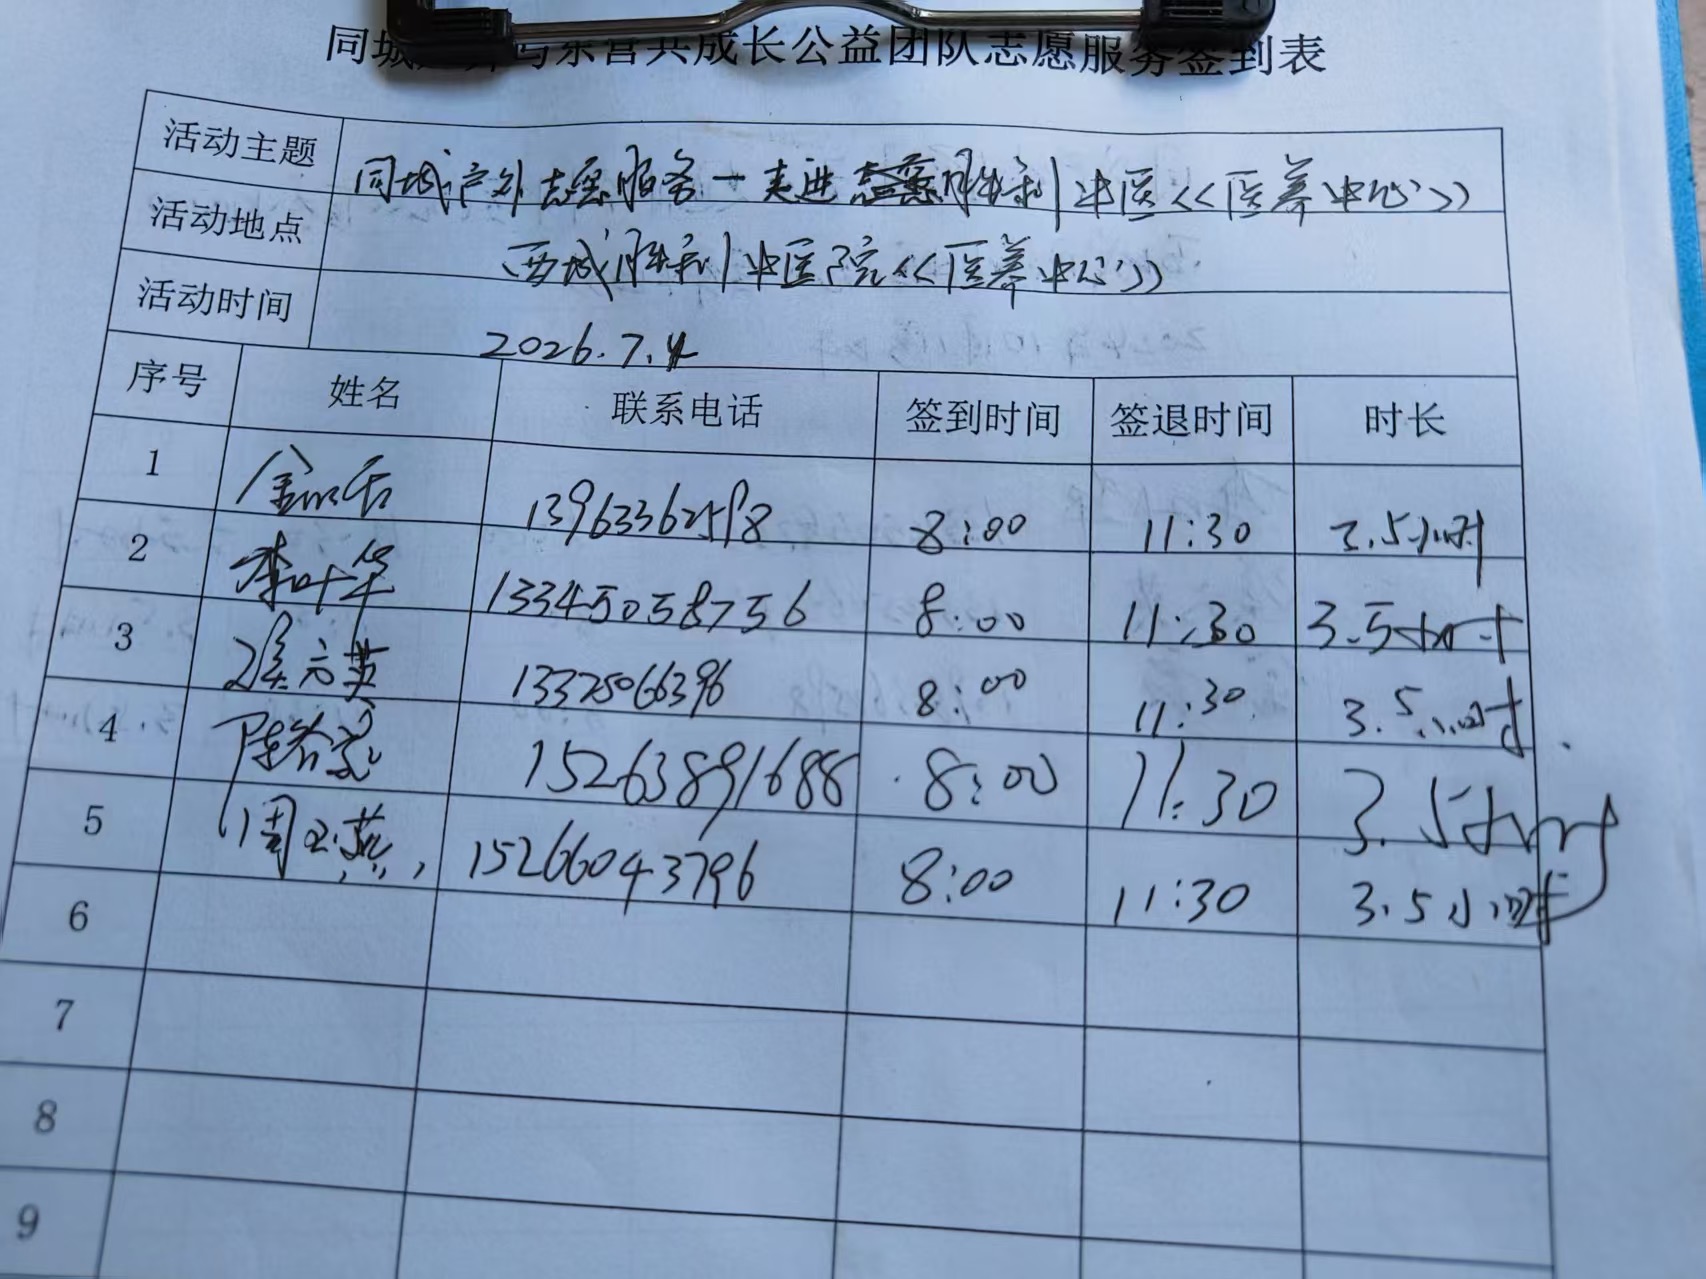 同城户外与东营共成长公益团队志愿服务签到表
活动主题 同城户外志愿服务—走进胜利中医《医养中心》
活动地点 西城胜利中医院《医养中心》
活动时间 2026.7.4
序号 姓名 联系电话 签到时间 签退时间 时长
1 13963362598 8:00 11:30 3.5小时
2 李叶华 13345058756 8:00 11:30 3.5小时
3 13325066396 8:00 11:30 3.5小时
4 15263891688 8:00 11:30 3.5小时
5 周玉燕 15266043796 8:00 11:30 3.5小时
6
7
8
9